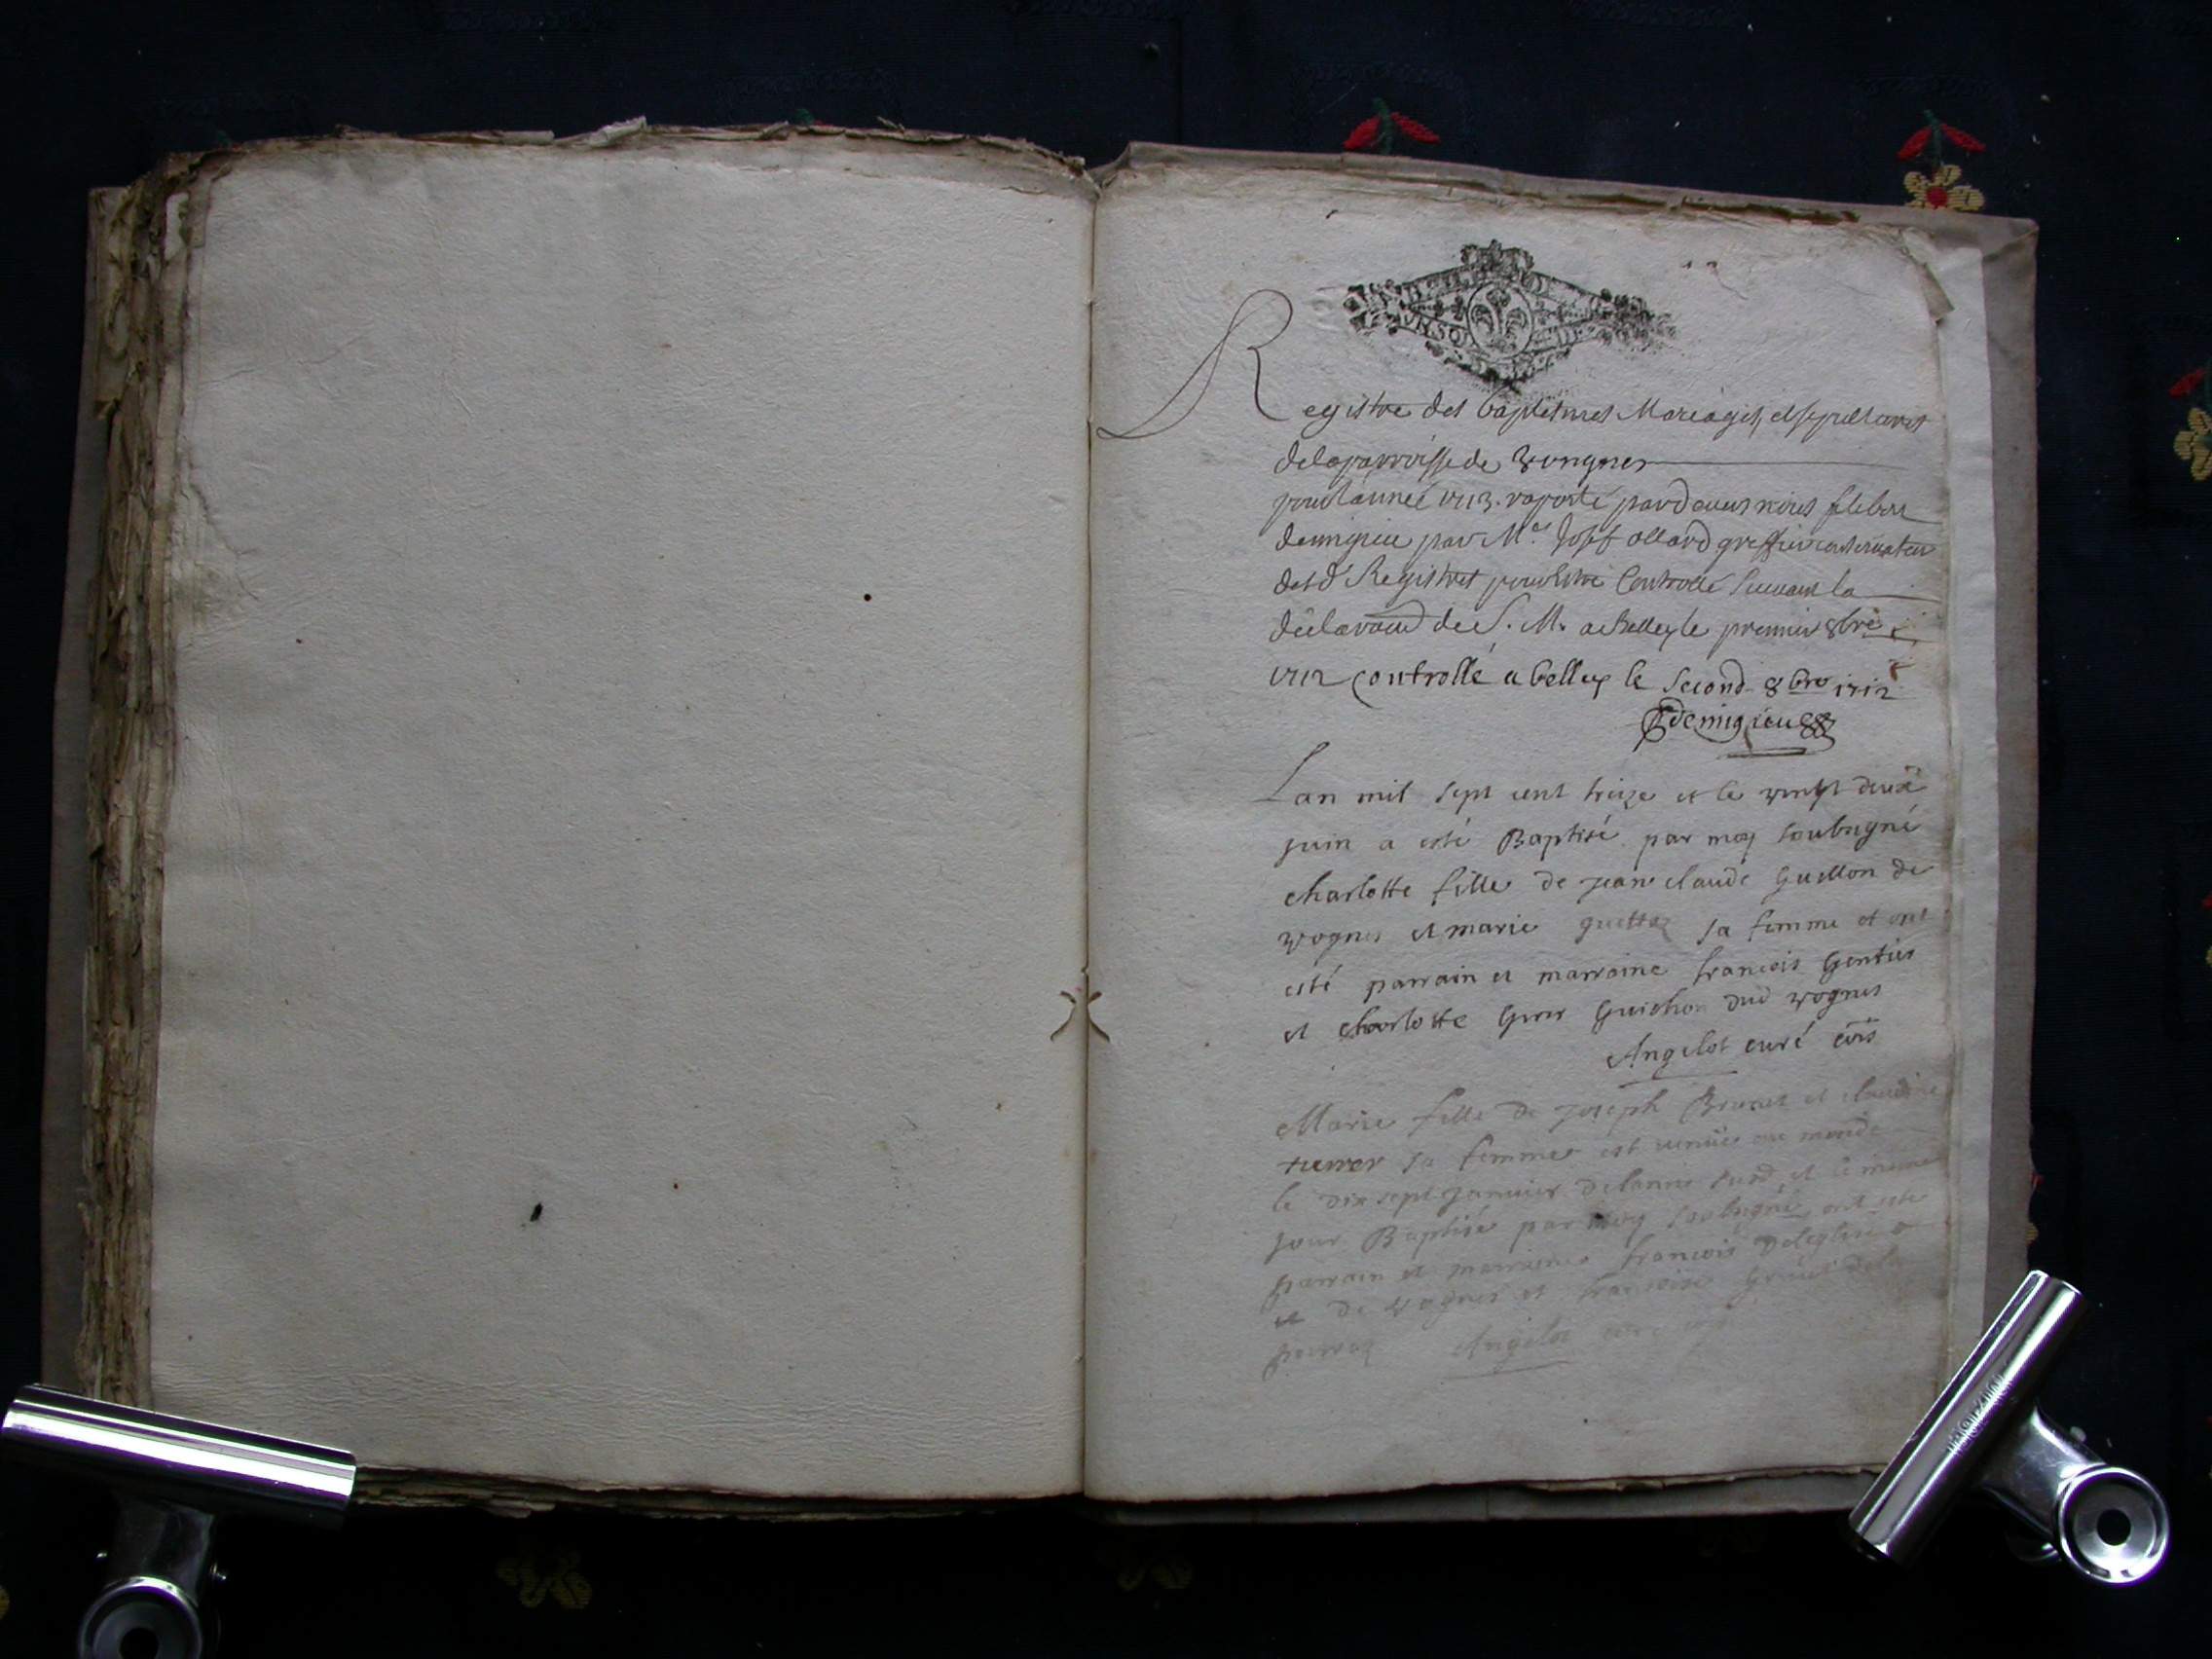 Registre des baptesmes Mariages, et sepultures
de la parroisse de Vongnes
pour lannée 1713. raporté pardevant nous
demigieu par Me Josef ollard greffier conservateur
desd Registres pour estre Controllé suivant la
déclaraon de S. M. a Belley le premier 8bre
1712 Controllé a belley le second 8bre 1712
demigieu
Lan mil sept cent treize et le vingt deux
juin a esté Baptisé par moy soubsigné
charlotte fille de jean claude Guillon de
vognes et marie guettaz sa femme et ont
esté parrain et marraine francois Gentier
et charlotte Guichon dud vognes
Angelot curé
Marie fille de joseph Brunet et claudine
sa femme est venüe au monde
le dix sept janvier delanne susd, et le mesme
jour Baptisée par moy soubsigné, ont esté
parrain et marraine francois
de vognes et francoise
Angelot curé